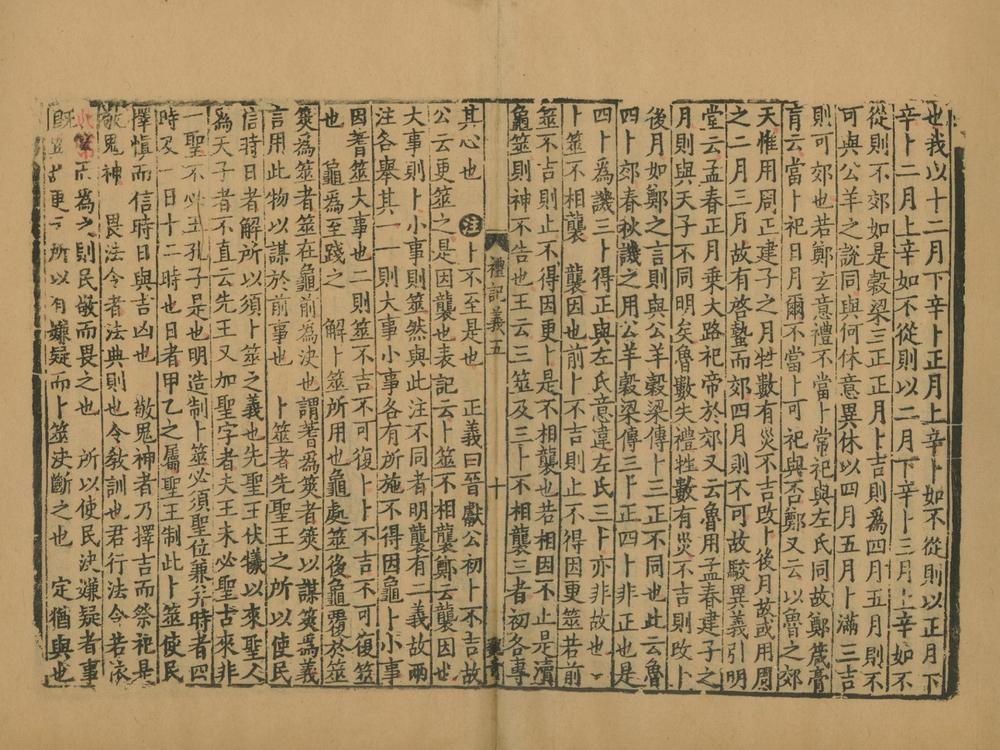 也我以十二月下辛卜正月上辛卜如不從則以正月下
辛卜二月上辛如不從則以二月下辛卜三月上辛如不
從則不郊如是穀梁三正正月卜吉則爲四月五月則不
可與公羊之說同與何休意異休以四月五月卜滿三吉
則可郊也若鄭玄意禮不當卜常祀與左氏同故鄭箴膏
肓云當卜祀日月爾不當卜可祀與否鄭又云以魯之郊
天惟用周正建子之月牲數有災不吉改卜後月故或用周
之二月三月故有啓蟄而郊四月則不可故駮異義引明
堂云孟春正月乗大路祀帝於郊又云魯用孟春建子之
月則與天子不同明矣魯數失禮牲數有災不吉則改卜
後月如鄭之言則與公羊穀梁傳卜三正不同也此云魯
四卜郊春秋譏之用公羊穀梁傳三卜正四卜非正也是
四卜爲譏三卜得正與左氏意違左氏三卜亦非故也
卜筮不相襲 襲因也前卜不吉則止不得因更筮若前
筮不吉則止不得因更卜是不相襲也若相因不止是瀆
龜筮則神不告也王云三筮及三卜不相襲三者初各專
禮記義五 十
其心也 注卜不至是也 正義曰晉獻公初卜不吉故
公云更筮之是因襲也表記云卜筮不相襲鄭云襲因也
大事則卜小事則筮然與此注不同者明襲有二義故兩
注各舉其一一則大事小事各有所施不得因龜卜小事
因蓍筮大事也二則筮不吉不可復卜卜不吉不可復筮
也 龜爲至踐之 解卜筮所用也龜處筮後龜覆於筮
筴為筮者筮在龜前為決也謂蓍爲筴者筴以謀筴爲義
言用此物以謀於前事也 卜筮者先聖王之所以使民
信時日者解所以須卜筮之義也先聖王伏犧以來聖人
爲天子者不直云先王又加聖字者夫王未必聖古來非
一聖不必王孔子是也明造制卜筮必須聖位兼并時者四
時及一日十二時也日者甲乙之屬聖王制此卜筮使民
擇愼而信時日與吉凶也 敬鬼神者乃擇吉而祭祀是
敬鬼神 畏法令者法典則也令敎訓也君行法令若依
卜筮而爲之則民敬而畏之也 所以使民決嫌疑者事
旣 更 所以有嫌疑而卜筮決斷之也 定猶與也